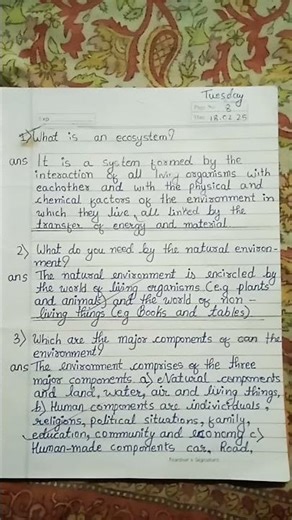 Tuesday
Page No. 8
Date 18.02.25
1) What is an ecosystem?
ans It is a system formed by the
interaction of all living organisms with
eachother and with the physical and
chemical factors of the environment in
which they live, all linked by the
transfer of energy and material
2) What do you need by the natural environ-
ment?
ans The natural environment is encircled by
the world of living organisms (e.g plants
and animals) and the world of non-
living things (eg Books and tables)
3) Which are the major components of can the
environment?
ans The environment comprises of the three
major components a) Natural components
and land, water, air and living things,
b) Human components are individuals,
religions, political situations, family,
education, community and economy c)
Human-made components car, Road,
Teacher's Signature